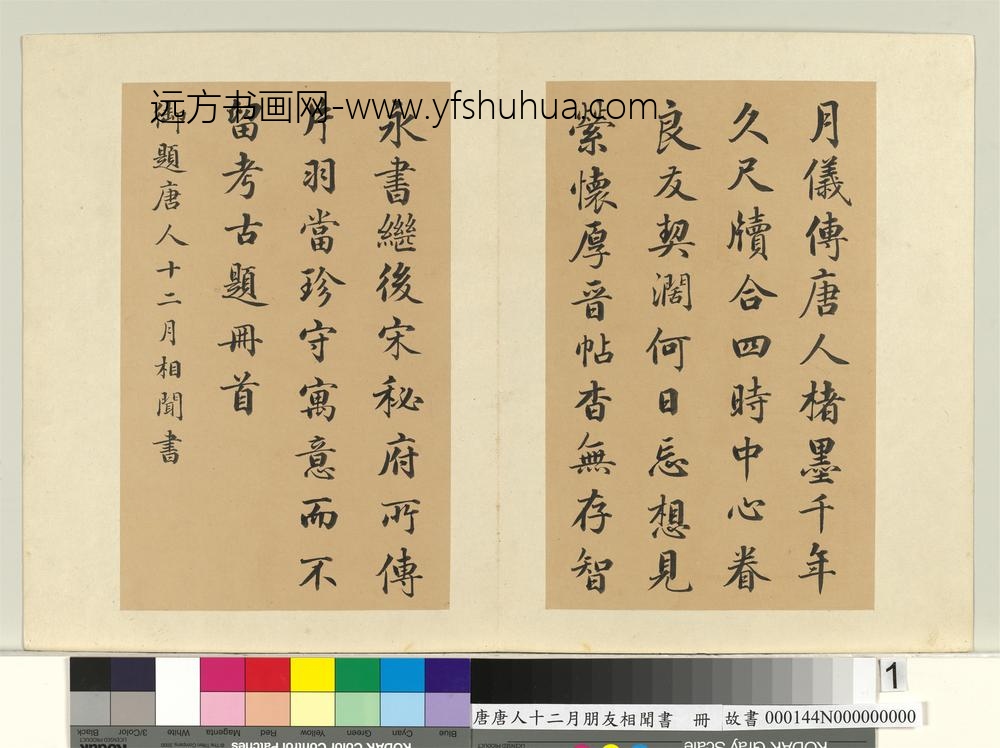 远方书画网-www.yfshuhua.com
月儀傳唐人楮墨千年
久尺牘合四時中心眷
良友契濶何日忘想見
縈懷厚晉帖杳無存智
永書繼後宋秘府所傳
片羽當珍守寓意而不
留考古題冊首
御題唐人十二月相聞書
1
唐唐人十二月朋友相聞書 冊 故書 000144N000000000
Black
3/Color
White
Magenta
Red
Yellow
Green
Cyan
Blue
KODAK Color Control Patches
KODAK Gray Scale
Kodak
LICENSED PRODUCT